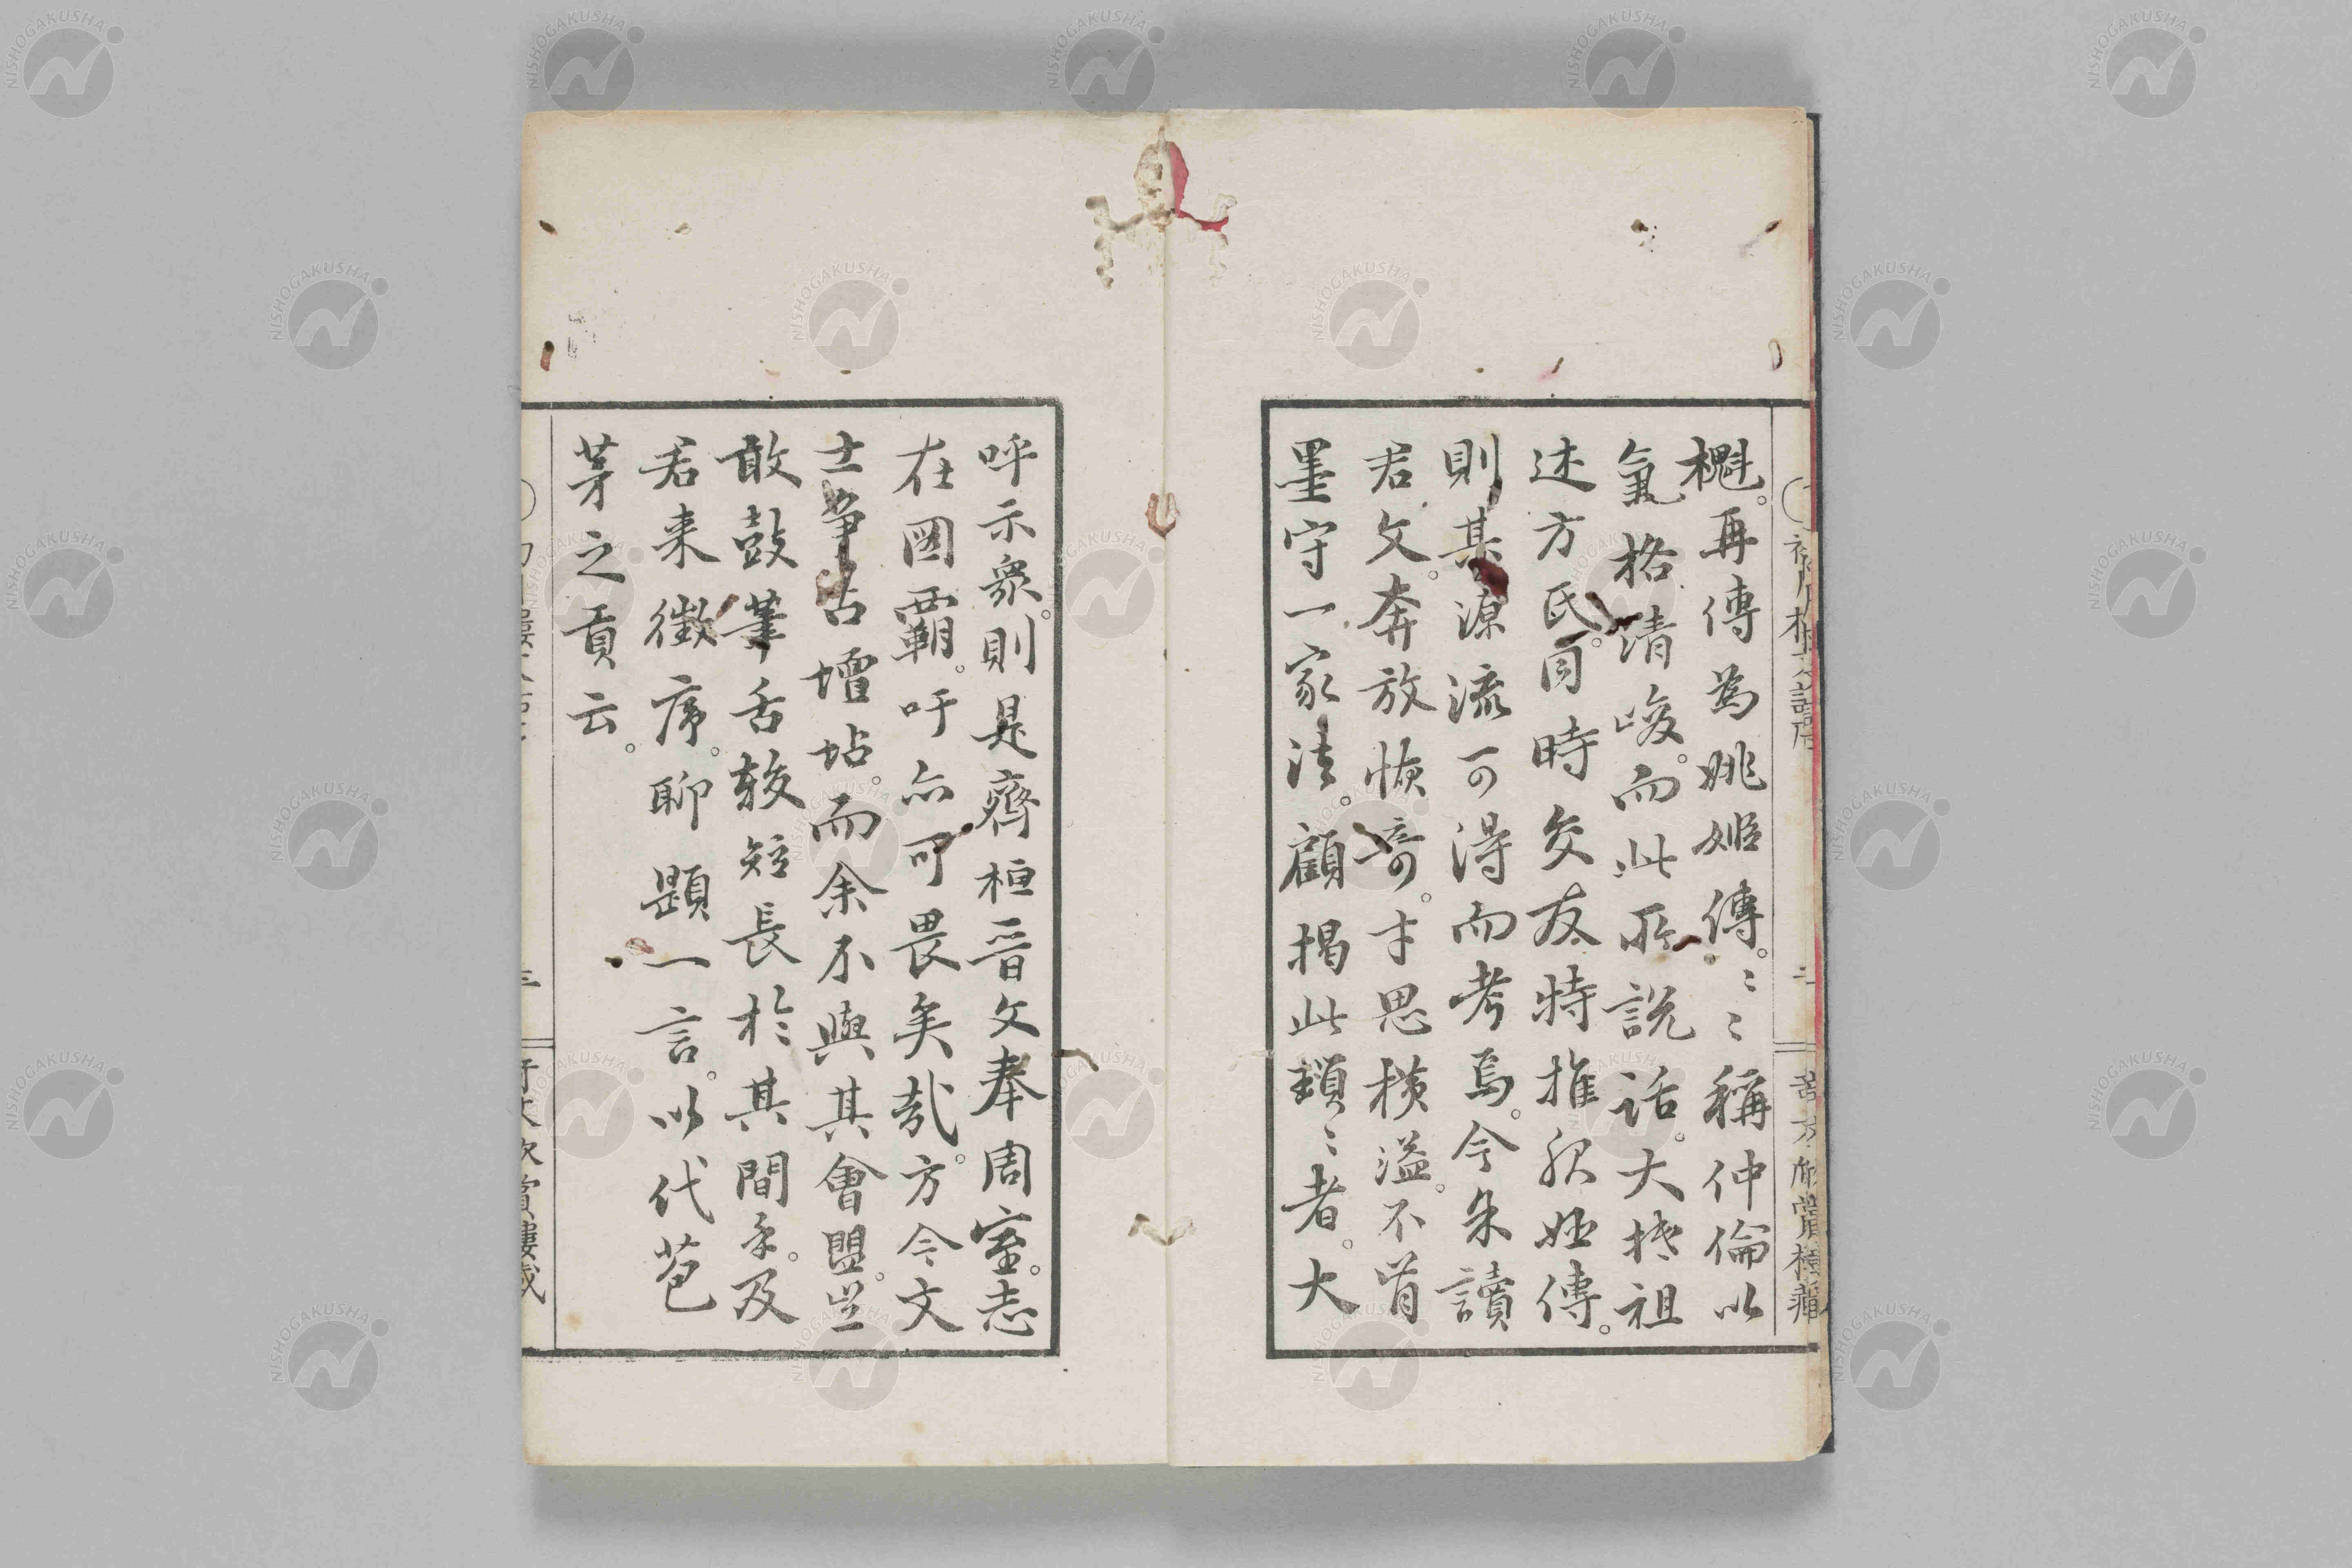 樾。再傳為姚姬傳。〻〻稱仲倫以
氣格清峻。而此所說話。大抵祖
述方氏。同時交友特推服姬傳。
則其源流可得而考焉。今朱讀
君文。奔放恢奇。才思橫溢。不肯
墨守一家法。顧揭此瑣〻者。大
呼示眾。則是齊桓晉文奉周室。志
在圖霸。吁亦可畏矣哉。方今文
士爭占壇坫。而余不與其會盟。豈
敢鼓筆舌較短長於其間乎。及
君来徵序。聊題一言。以代苞
茅之貢云。
三
NISHOGAKUSHA